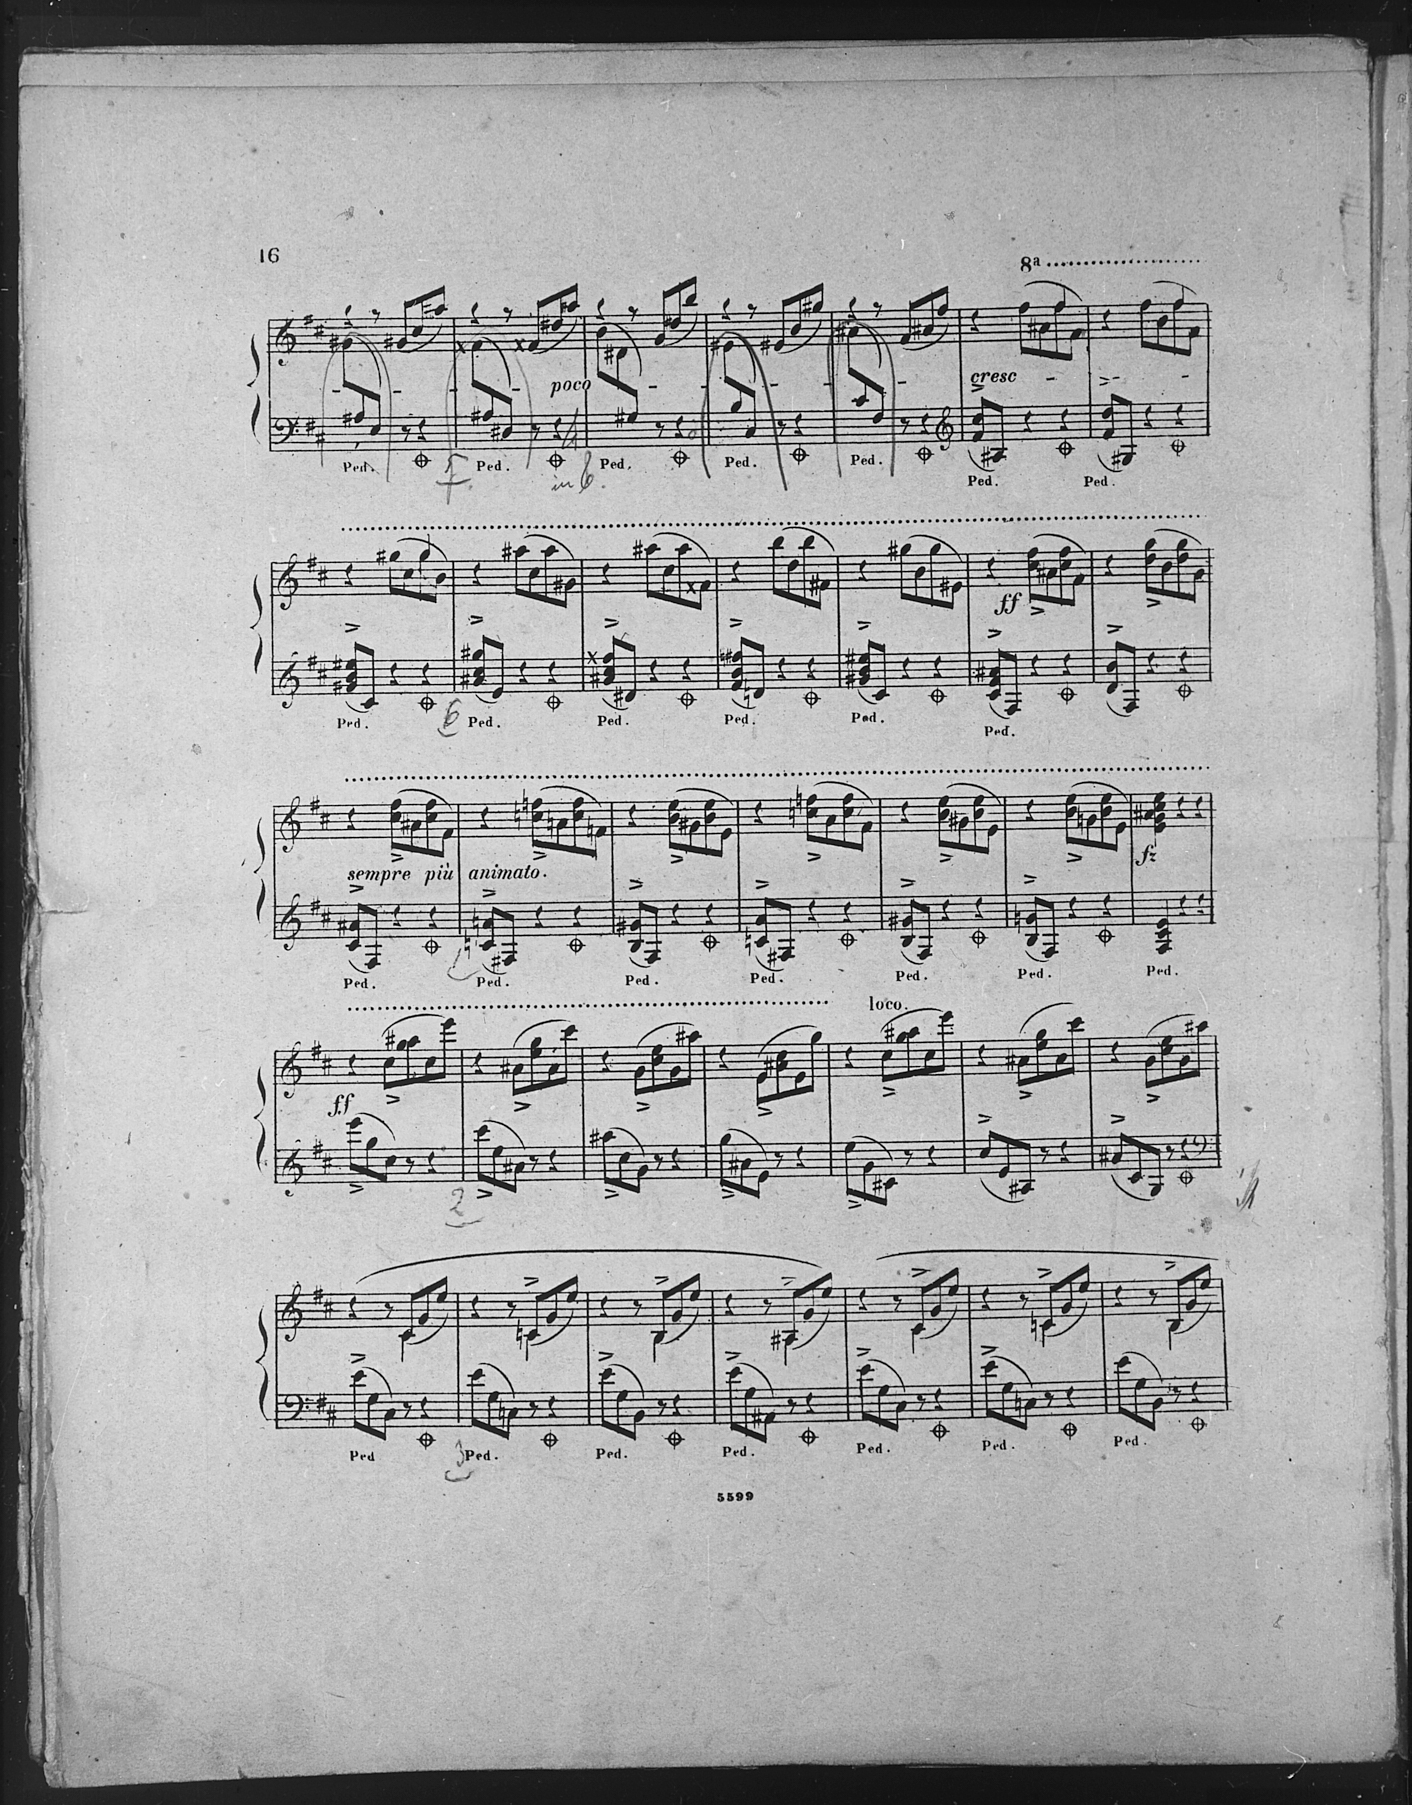 16
8ª
poco
cresc
Ped. Ped. Ped. Ped. Ped. Ped. Ped.
7. in 6.
ff
Ped. 6 Ped. Ped. Ped. Ped. Ped.
sempre più animato.
fz
Ped. Ped. Ped. Ped. Ped. Ped. Ped.
loco.
ff
2
Ped 3 Ped. Ped. Ped. Ped. Ped. Ped.
5599